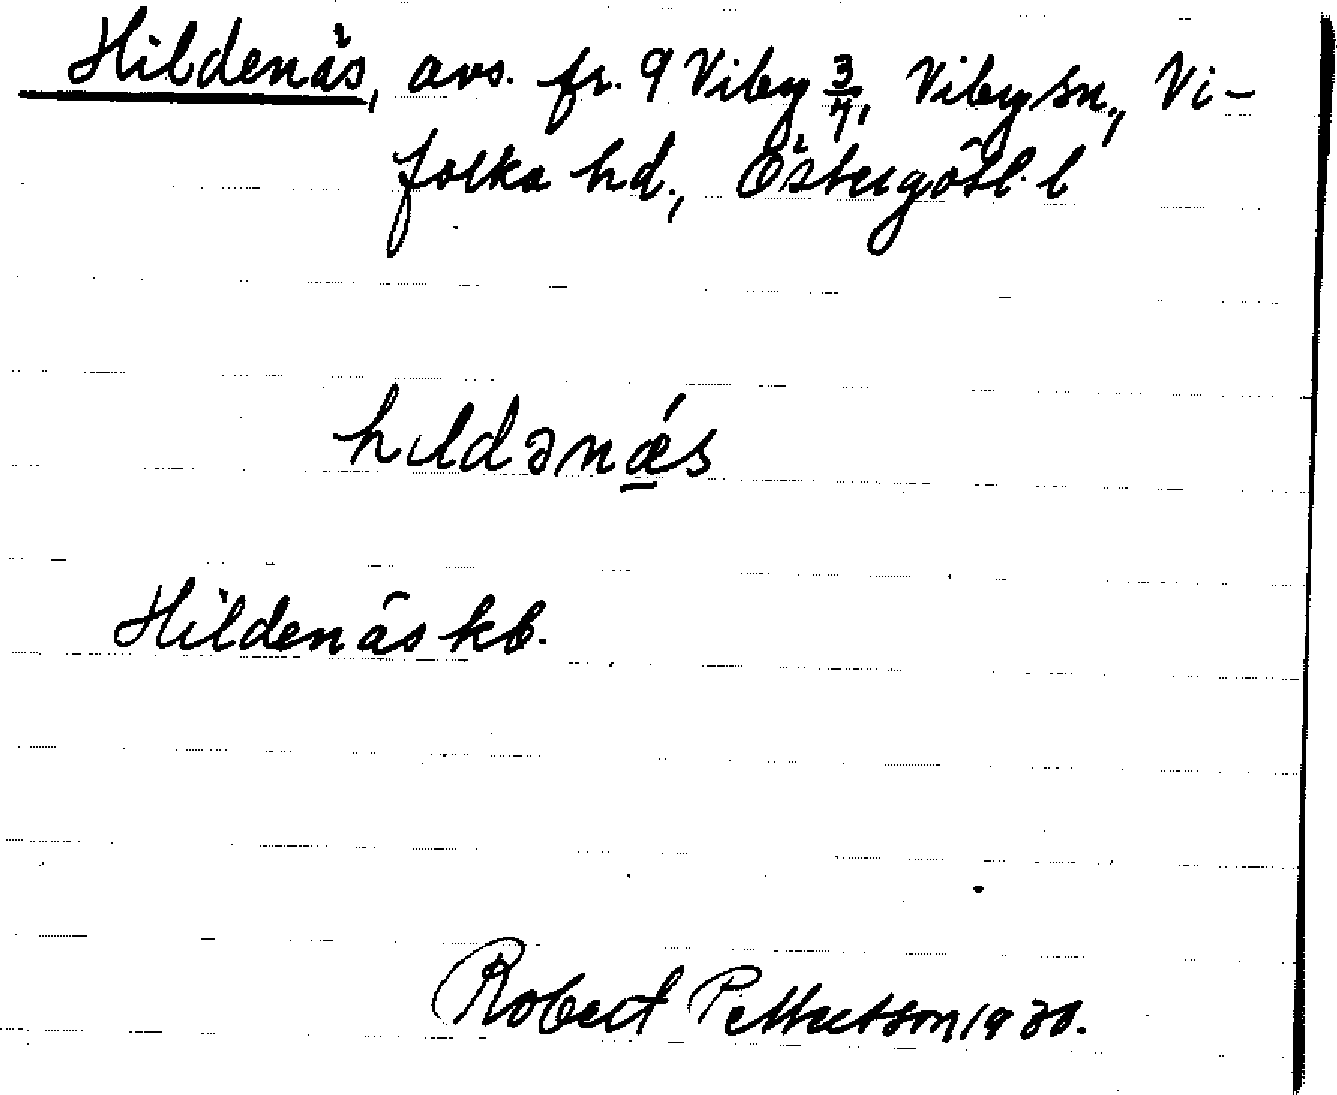 Hildenäs, avs. fr. 9 Viby 3/7, Viby sn., Vi-
folka hd., Östergötl. l
hıldənǽs
Hildenäs kb.
Robert Pettersson 1930.